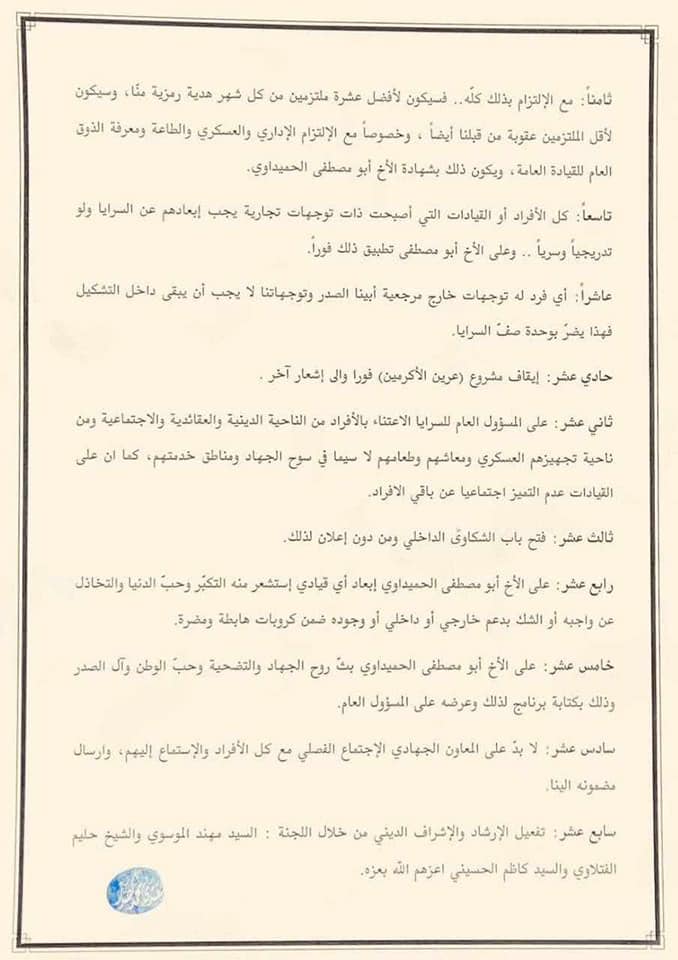 ثامناً: مع الإلتزام بذلك كلّه.. فسيكون لأفضل عشرة ملتزمين من كل شهر هدية رمزية منّا، وسيكون
لأقل الملتزمين عقوبة من قبلنا أيضاً ، وخصوصاً مع الإلتزام الإداري والعسكري والطاعة ومعرفة الذوق
العام للقيادة العامة، ويكون ذلك بشهادة الأخ أبو مصطفى الحميداوي.
تاسعاً: كل الأفراد أو القيادات التي أصبحت ذات توجهات تجارية يجب إبعادهم عن السرايا ولو
تدريجياً وسرياً .. وعلى الأخ أبو مصطفى تطبيق ذلك فوراً.
عاشراً: أي فرد له توجهات خارج مرجعية أبينا الصدر وتوجهاتنا لا يجب أن يبقى داخل التشكيل
فهذا يضرّ بوحدة صفّ السرايا.
حادي عشر: إيقاف مشروع (عرين الأكرمين) فورا والى إشعار آخر .
ثاني عشر: على المسؤول العام للسرايا الاعتناء بالأفراد من الناحية الدينية والعقائدية والاجتماعية ومن
ناحية تجهيزهم العسكري ومعاشهم وطعامهم لا سيما في سوح الجهاد ومناطق خدمتهم، كما ان على
القيادات عدم التميز اجتماعيا عن باقي الافراد.
ثالث عشر: فتح باب الشكاوىٰ الداخلي ومن دون إعلان لذلك.
رابع عشر: على الأخ أبو مصطفى الحميداوي إبعاد أي قيادي إستشعر منه التكبّر وحبّ الدنيا والتخاذل
عن واجبه أو الشك بدعم خارجي أو داخلي أو وجوده ضمن كروبات هابطة ومضرة.
خامس عشر: على الأخ أبو مصطفى الحميداوي بثّ روح الجهاد والتضحية وحبّ الوطن وآل الصدر
وذلك بكتابة برنامج لذلك وعرضه على المسؤول العام.
سادس عشر: لا بدّ على المعاون الجهادي الإجتماع الفصلي مع كل الأفراد والإستماع إليهم، وارسال
مضمونه الينا.
سابع عشر: تفعيل الإرشاد والإشراف الديني من خلال اللجنة : السيد مهند الموسوي والشيخ حليم
الفتلاوي والسيد كاظم الحسيني اعزهم الله بعزه.